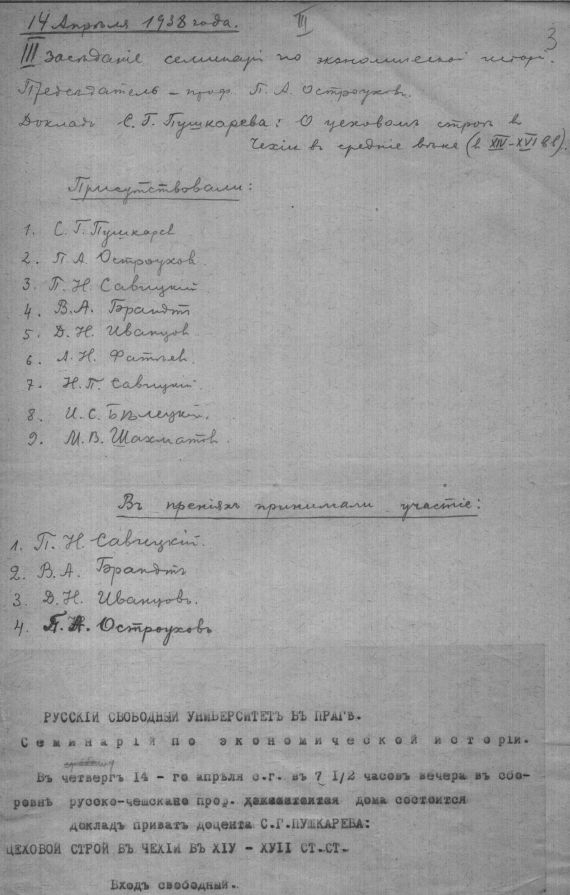 14 Апрѣля 1938 года.
III
3
III Засѣданіе семинарія по экономической исторіи.
Предсѣдатель – проф. П. А. Остроуховъ.
Докладъ С. Г. Пушкарева: О цеховомъ строѣ в
Чехіи въ средніе вѣка (в XIV–XVI вв).
Присутствовали:
1. С. Г. Пушкарев
2. П. А. Остроухов.
3. П. Н. Савицкій
4. В. А. Брандтъ
5. Д. Н. Иванцов
6. А. Н. Фатѣев.
7. Н. П. Савицкій.
8. И. С. Бѣлецкій.
9. М. В. Шахматов.
Въ преніяхъ принимали участіе:
1. П. Н. Савицкій.
2. В. А. Брандтъ
3. Д. Н. Иванцовъ.
4. П. А. Остроуховъ
РУССКІЙ СВОБОДНЫЙ УНИВЕРСИТЕТЪ ВЪ ПРАГѢ.
Семинарій по экономической исторіи.
Въ четвергъ 14 - го апрѣля с.г. въ 7 1/2 часовъ вечера въ сбо-
ровнѣ русско-чешскаго проф. дома состоится
докладъ приватъ доцента С.Г.ПУШКАРЕВА:
ЦЕХОВОЙ СТРОЙ ВЪ ЧЕХІИ ВЪ XIV - XVII СТ.СТ.
Входъ свободный.